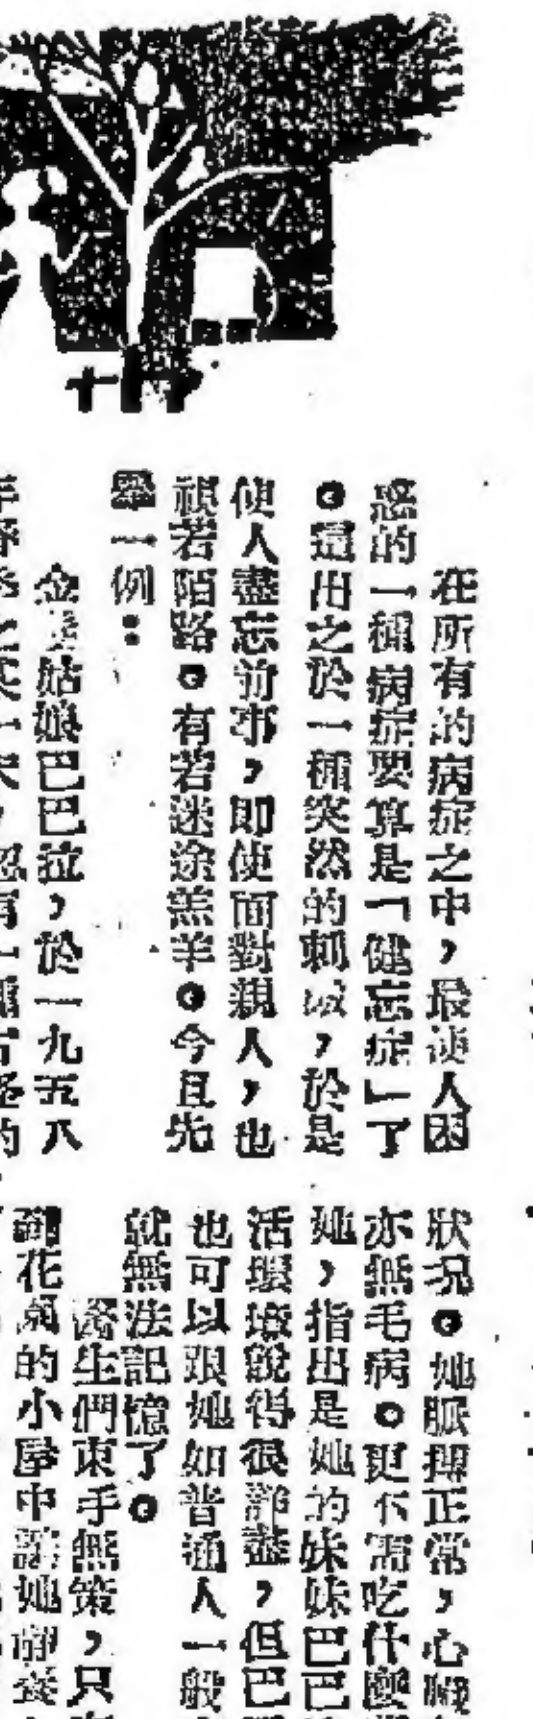 在所有的病症之中，最使人困
惑的一種病症要算是「健忘症」了
。這出之於一種突然的刺，於是
使人盡忘前事，即使面對親人，也
視若陌路。有若迷途羔羊。今且先
舉一例：
金姑娘巴巴拉，於一九五八
狀况。她脈搏正常，心臟
亦無毛病。更不需吃什麼
她，指出是她的妹妹巴巴
活環境說得很詳盡，但巴
也可以跟她如普通人一般
就無法記憶了。
醫生們束手無策，只
到花園的小屋中讓她靜養